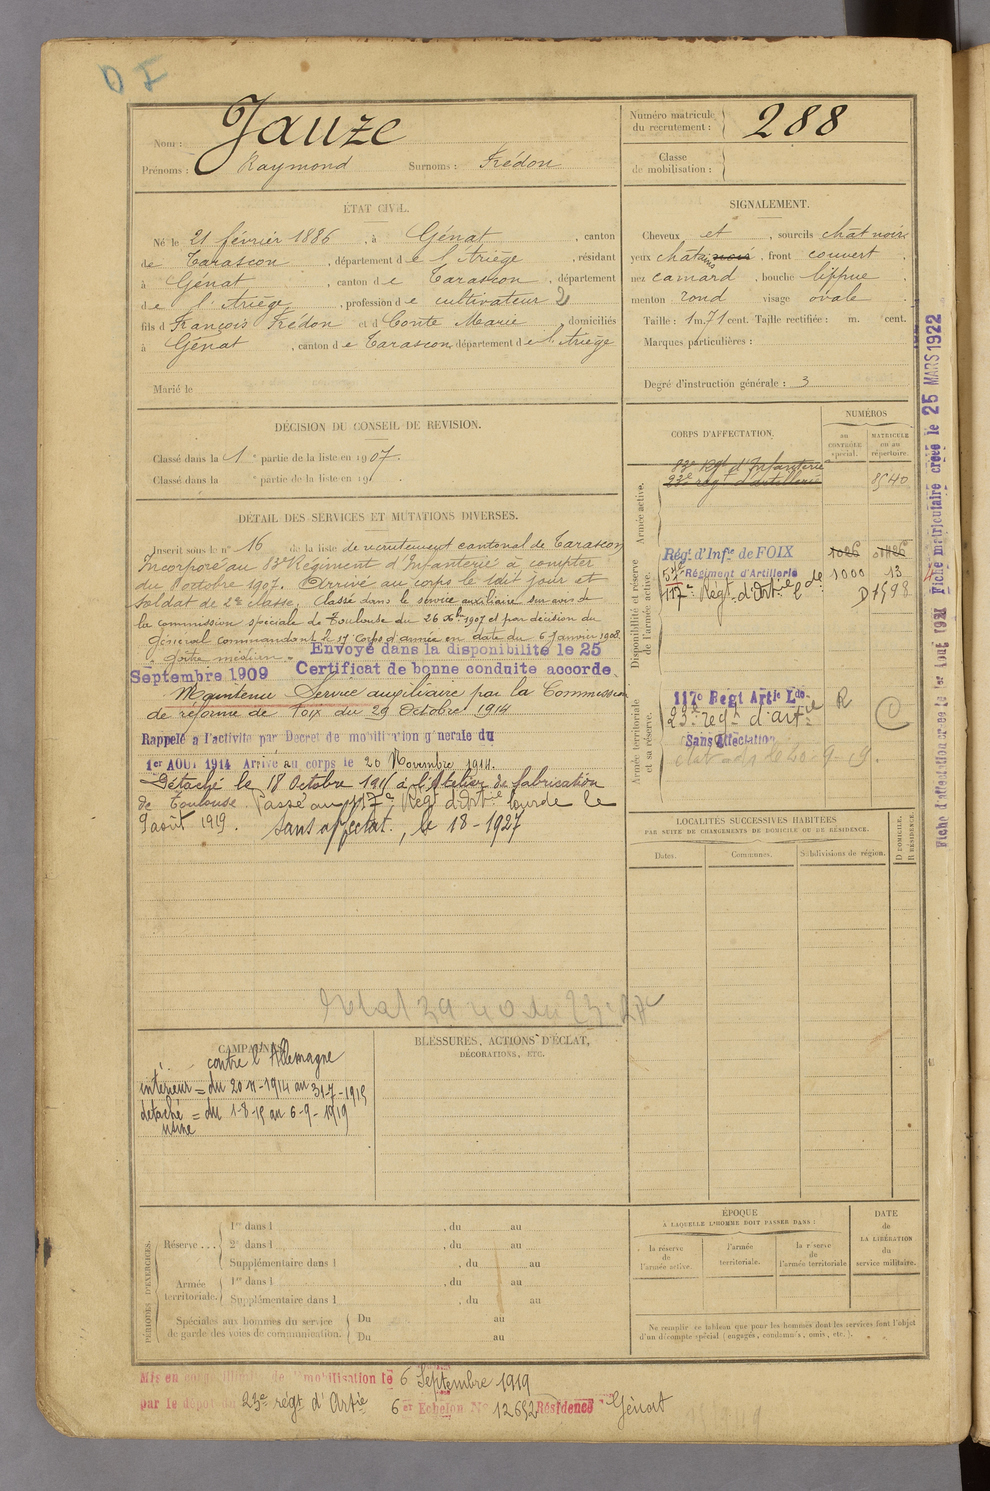 Nom : Jauze
Prénoms : Raymond Surnoms : Frédon
Numéro matricule du recrutement : 288
Classe de mobilisation :
ÉTAT CIVIL.
Né le 21 février 1886, à Génat, canton
de Tarascon, département de l'Ariège, résidant
à Génat, canton de Tarascon, département
de l'Ariège, profession de cultivateur 2
fils de François Frédon et de Conte Marie, domiciliés
à Génat, canton de Tarascon, département de l'Ariège
Marié le
SIGNALEMENT.
Cheveux et, sourcils chat noirs
yeux chatains noirs, front couvert,
nez camard, bouche lippue
menton rond visage ovale
Taille : 1 m. 71 cent. Taille rectifiée : m. cent.
Marques particulières :
Degré d'instruction générale : 3
DÉCISION DU CONSEIL DE REVISION.
Classé dans la 1e partie de la liste en 1907.
Classé dans la e partie de la liste en 19
DÉTAIL DES SERVICES ET MUTATIONS DIVERSES.
Inscrit sous le n° 16 de la liste de recrutement cantonal de Tarascon
Incorporé au 83e Régiment d'Infanterie à compter
du 8 octobre 1907. Arrivé au corps le 1dit jour et
soldat de 2e classe. Classé dans le service auxiliaire sur avis de
la commission spéciale de Toulouse du 26 Xbre 1907 et par décision du
Général commandant le 17e Corps d'armée en date du 6 Janvier 1908.
"goitre médian".
Envoyé dans la disponibilité le 25
Septembre 1909 Certificat de bonne conduite accordé
Maintenu Service auxiliaire par la Commission
de réforme de Foix du 29 Octobre 1914
Rappelé à l'activité par Décret de mobilisation générale du
1er AOUT 1914 Arrivé au corps le 20 Novembre 1914.
Détaché le 18 Octobre 1916 à l'Atelier de fabrication
de Toulouse. Passé au 117e Régt d'Artie lourde le
9 août 1919. Sans affectat., le 18-1927
CORPS D'AFFECTATION.
NUMÉROS
au CONTRÔLE spécial.
MATRICULE ou au répertoire.
Armée active.
83e Régt d'Infanterie
23e régt d'artillerie 8540
Disponibilité et réserve de l'armée active.
Rég. d'Infie de FOIX 1026 01426
57e Régiment d'Artillerie 1000 13
117e Régt d'Artie lde D 1598
Armée territoriale et sa réserve.
117e Régt Artie Lde R
23e régt d'artie C
Sans Affectation
LOCALITÉS SUCCESSIVES HABITÉES
PAR SUITE DE CHANGEMENTS DE DOMICILE OU DE RÉSIDENCE.
Dates. Communes. Subdivisions de région.
D DOMICILE. R RÉSIDENCE.
Fiche d'affectation créée le 1er Août 1921 Fiche matriculaire créée le 25 MARS 1922
CAMPAGNES.
contre l'Allemagne
intérieur = du 20-11-1914 au 31-7-1915
détaché = du 1-8-15 au 6-9-1919
usine
BLESSURES, ACTIONS D'ÉCLAT,
DÉCORATIONS, ETC.
PÉRIODES D'EXERCICES.
Réserve ...
1re dans l , du au
2e dans l , du au
Supplémentaire dans l , du au
Armée territoriale.
1re dans l , du au
Supplémentaire dans l , du au
Spéciales aux hommes du service de garde des voies de communication.
Du au
Du au
ÉPOQUE
A LAQUELLE L'HOMME DOIT PASSER DANS :
la réserve de l'armée active.
l'armée territoriale.
la réserve de l'armée territoriale
DATE de LA LIBÉRATION du service militaire.
Ne remplir ce tableau que pour les hommes dont les services font l'objet
d'un décompte spécial (engagés, condamnés, omis, etc.).
Mis en congé illimité de démobilisation le 6 Septembre 1919
par le dépôt du 23e régt d'Artie 6er Echelon No 12652 Résidence Génat